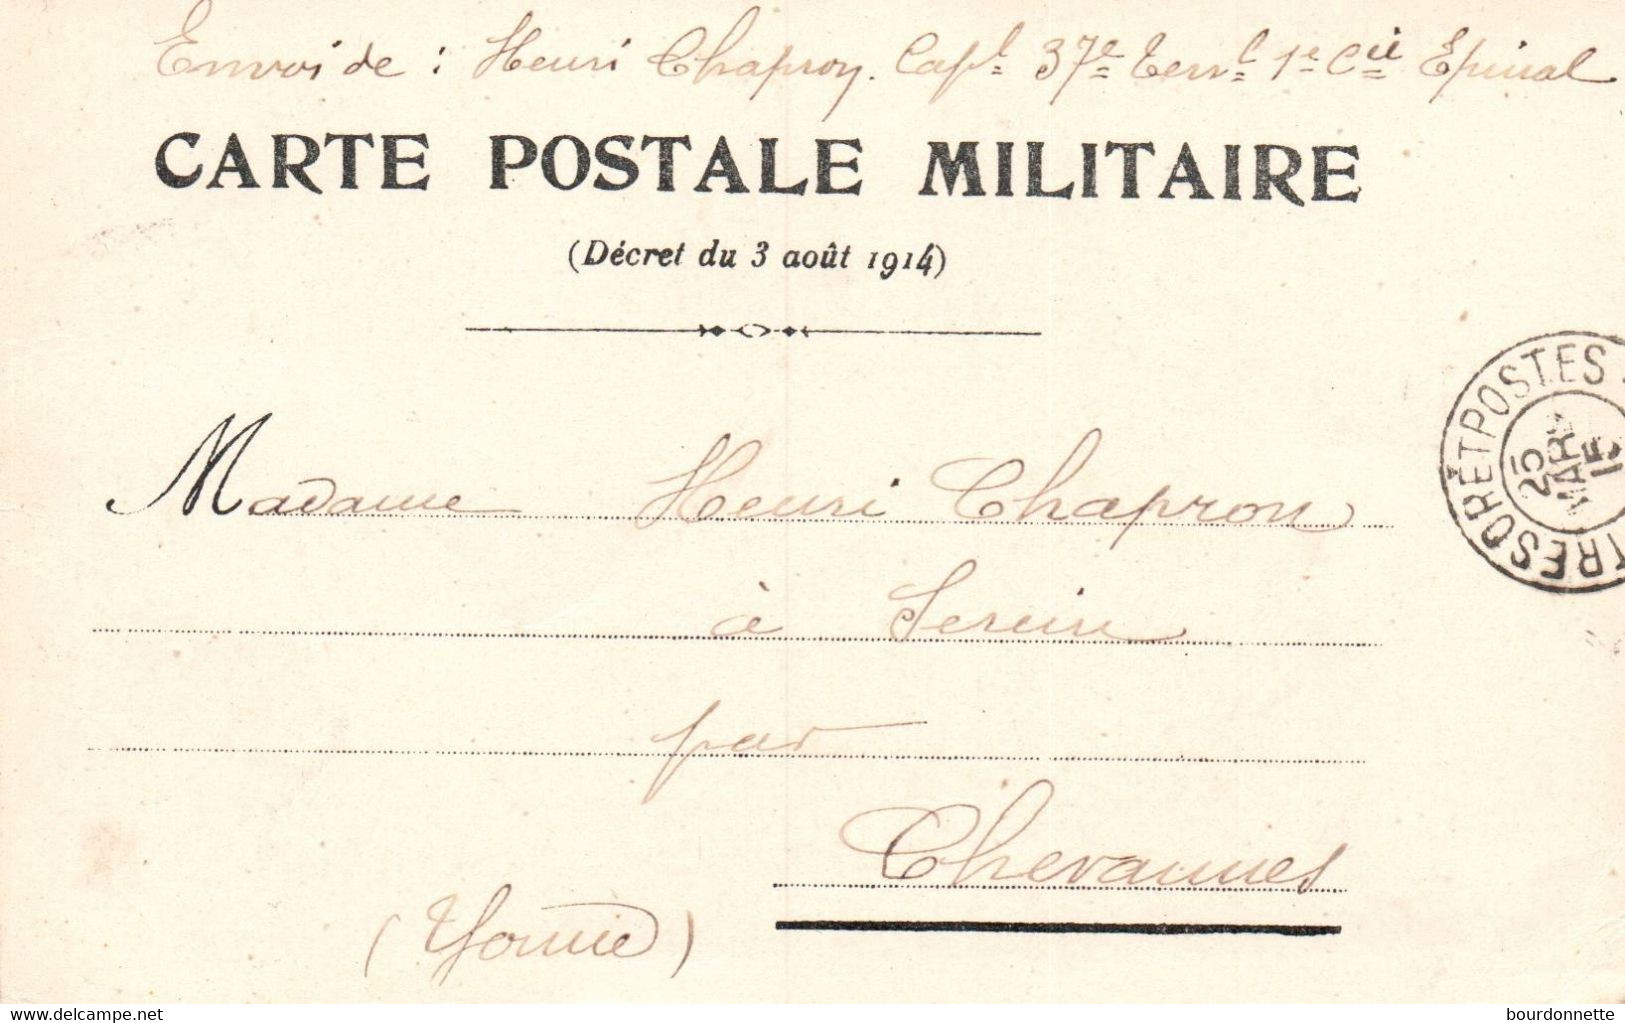 Envoi de : Henri Chapron. Capl 37e Terrl 1e Cie Epinal
CARTE POSTALE MILITAIRE
(Décret du 3 août 1914)
TRESOR ET POSTES
25
MARS
15
Madame Henri Chapron
à Serein
par
Chevannes
(Yonne)
delcampe.net
bourdonnette